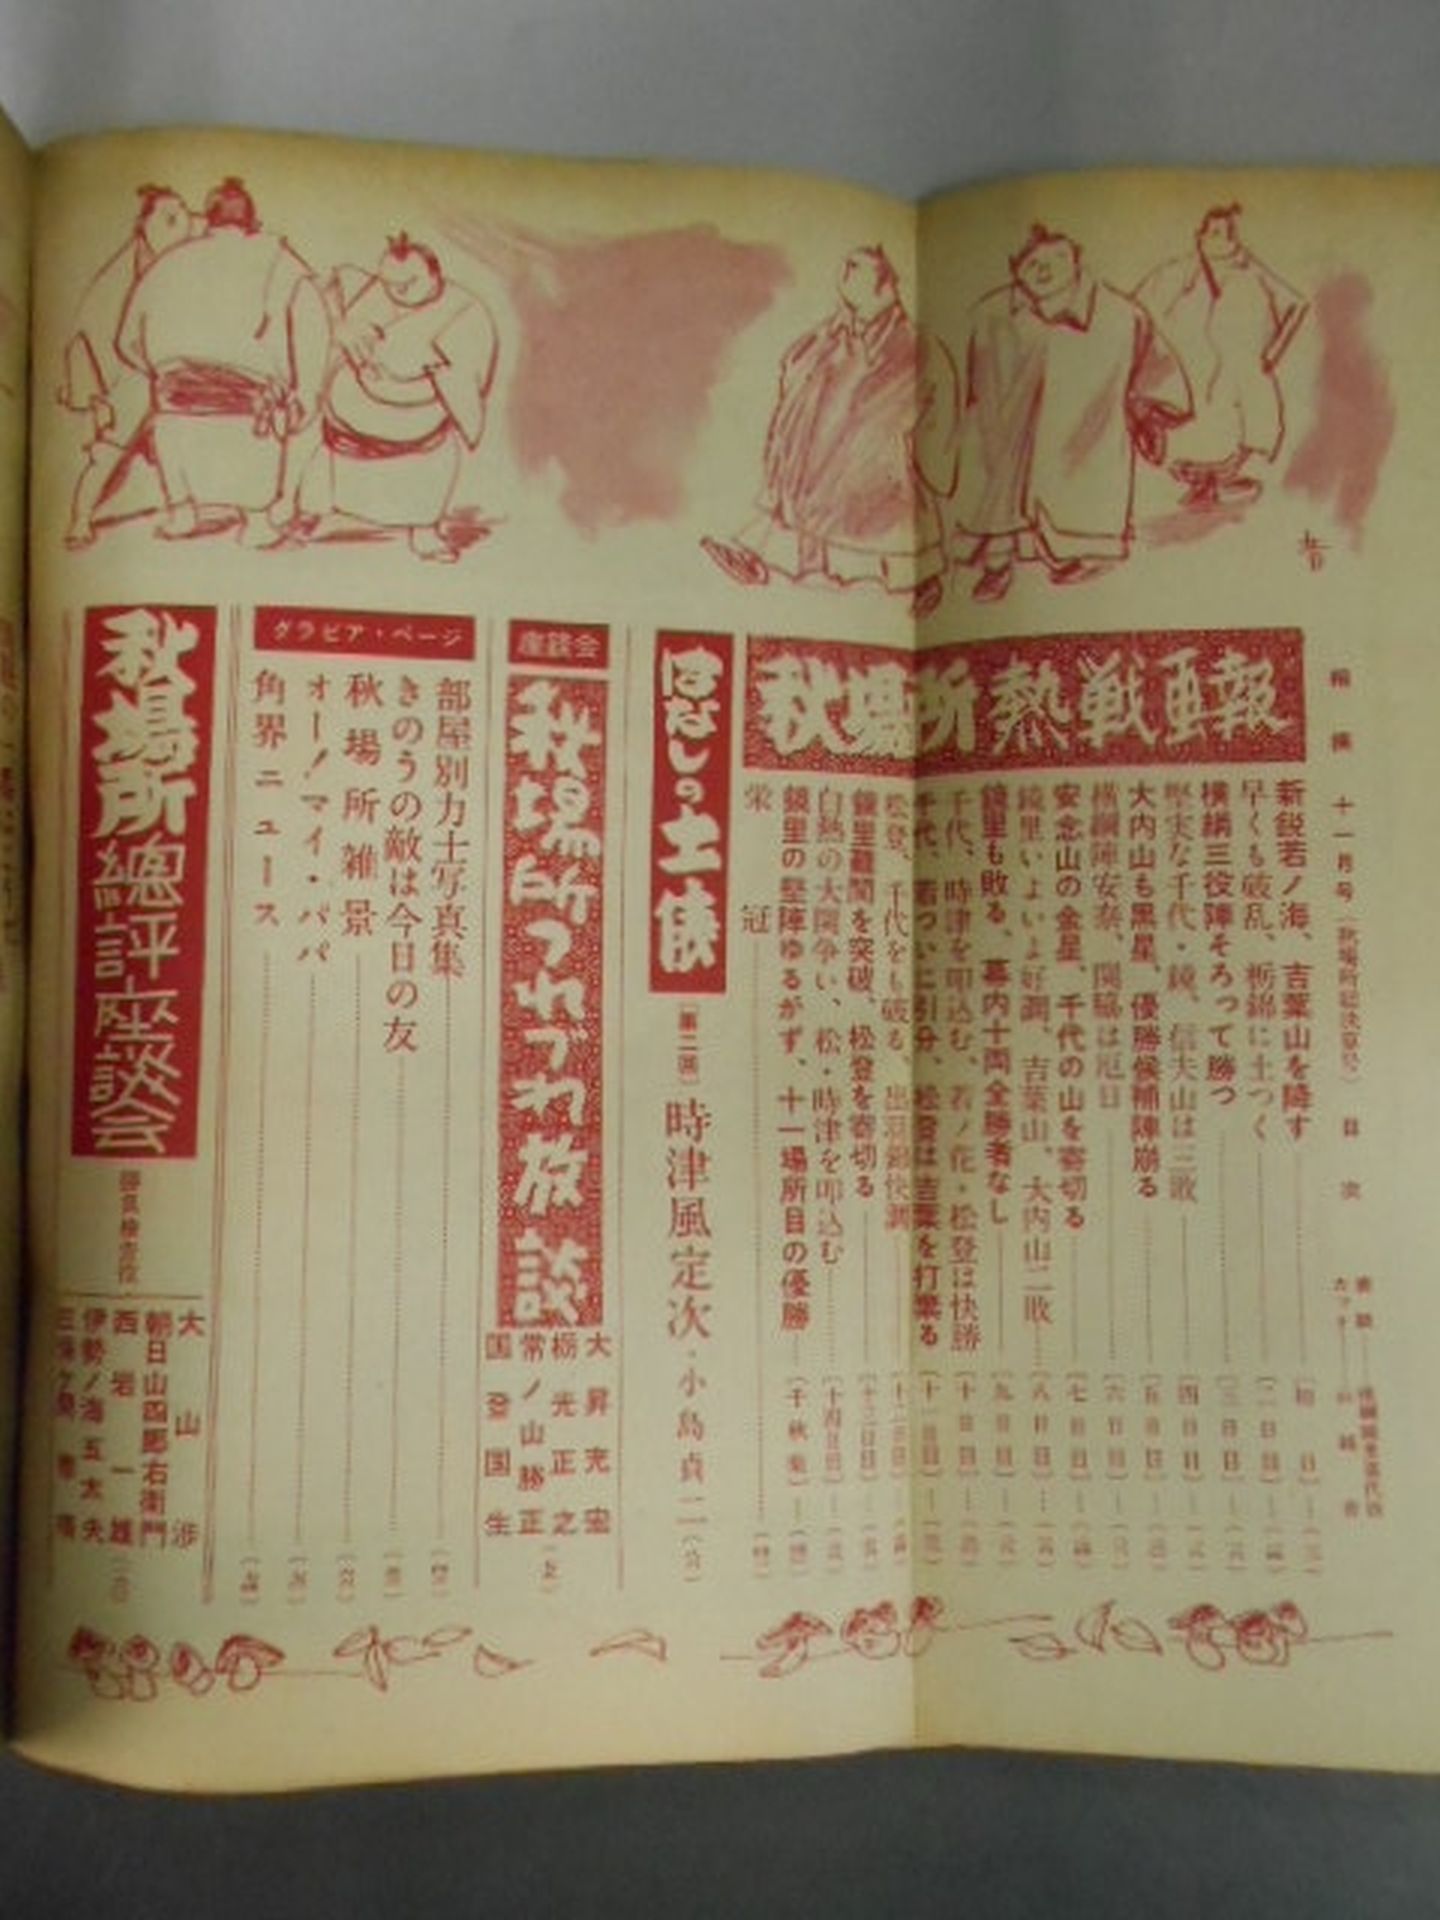 相撲 十一月号（秋場所総決算号） 目次
秋場所熱戦画報
新鋭若ノ海、吉葉山を降す
早くも破乱、栃錦に土つく
横綱三役陣そろって勝つ
堅実な千代・鏡、信夫山は三敗
大内山も黒星、優勝候補陣崩る
横綱陣安泰、関脇は厄日
安念山の金星、千代の山を寄切る
鏡里いよいよ好調、吉葉山、大内山二敗
鏡里も敗る、幕内十両全勝者なし
千代、時津を叩込む、若ノ花・松登は快勝
千代、若ついに引分、松登は吉葉を打棄る
松登、千代をも破る、出羽錦快調
鏡里難関を突破、松登を寄切る
白熱の大関争い、松・時津を叩込む
鏡里の堅陣ゆるがず、十一場所目の優勝
栄冠
はなしの土俵
（第二回）
時津風定次・小島貞二
座談会
秋場所つれづれ放談
大昇充宏
栃光正之
常ノ山勝正
国登国生
グラビア・ページ
部屋別力士写真集
きのうの敵は今日の友
秋場所雑景
オー！マイ・パパ
角界ニュース
秋場所總評座談会
勝負検査役
大山渉
朝日山四郎右衛門
西岩一雄
伊勢ノ海五太夫